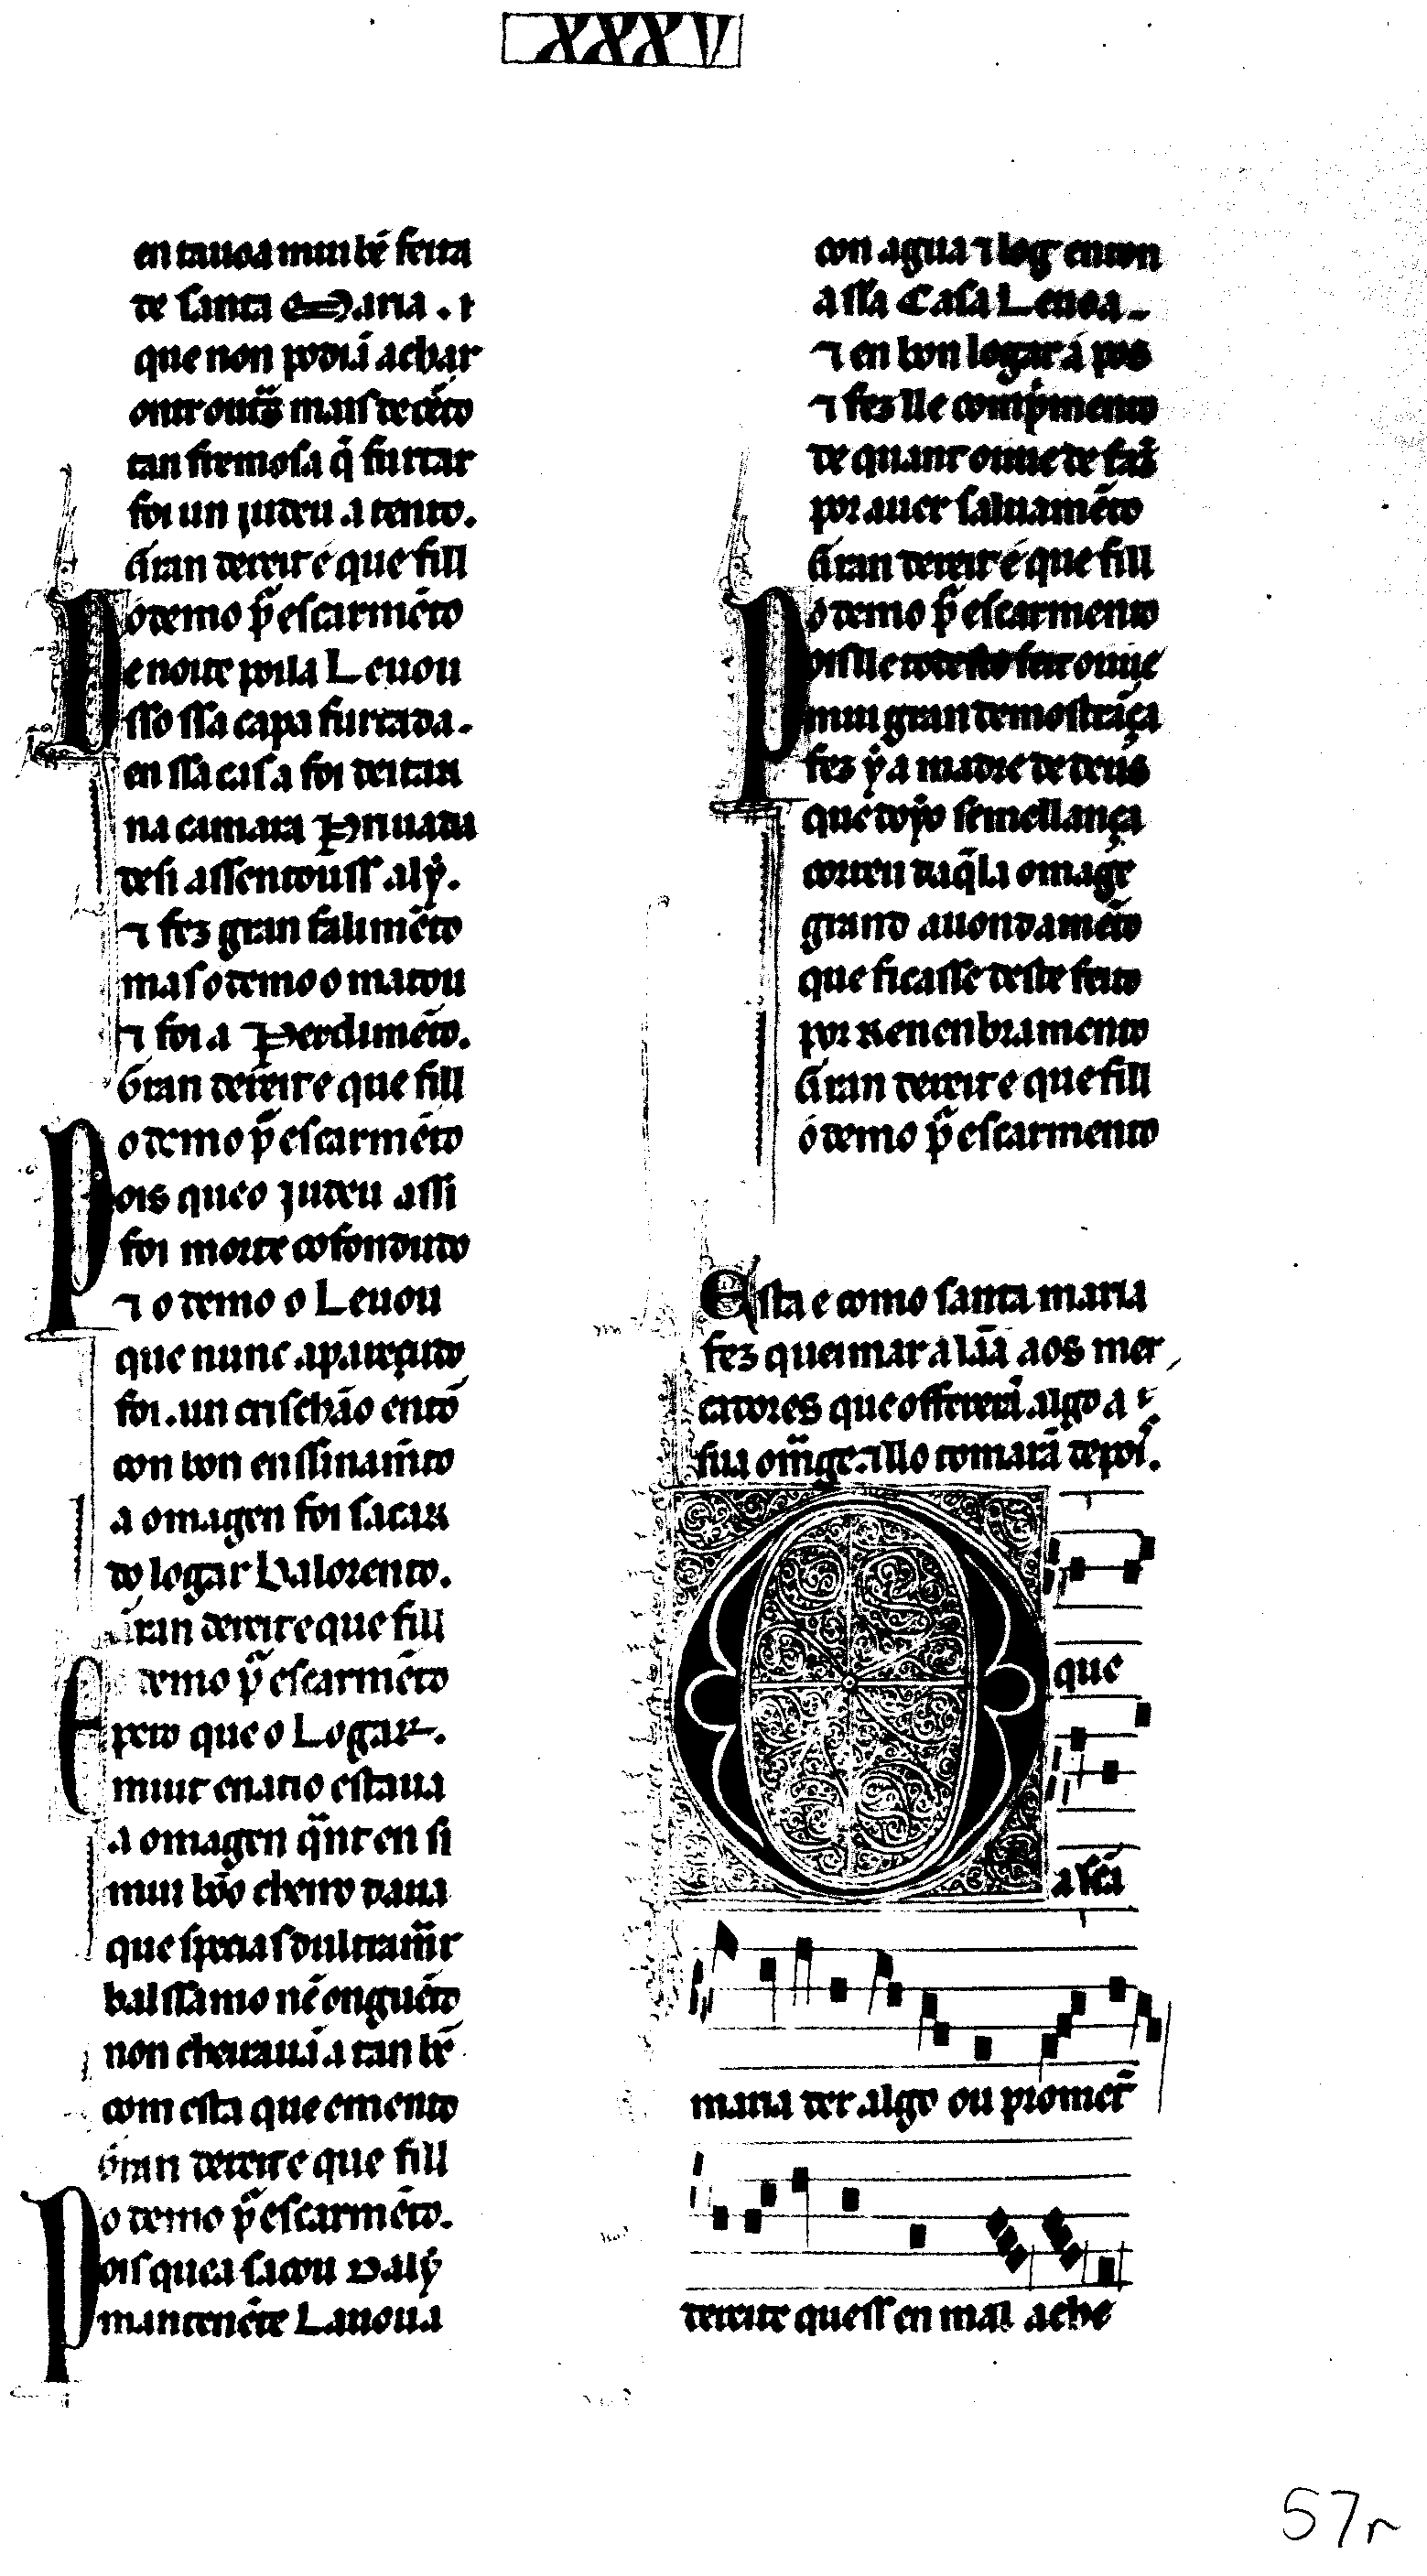 XXXV
en tauoa mui bẽ feita
de santa Maria . ⁊
que non podiã achar
ontr outͣs mais de cẽto
tan fremosa q̃ furtar
foi un judeu a tento.
Gran dereit é que fill
o demo pͬ escarmẽto
De noite poila Leuou
sso ssa capa furtada.
en ssa casa foi deitar
na camara Priuada
desi assentouss aly.
⁊ fez gran falimẽto
mas o demo o matou
⁊ foi a Perdimẽto.
Gran dereit e que fill
o demo pͬ escarmẽto
Pois que o judeu assi
foi morte cofondudo
⁊ o demo o Leuou
que nunc apareçudo
foi. un crischão entõ
con bon enssinam̃to
a omagen foi sacar
do logar Balorento.
Gran dereit e que fill
demo pͬ escarmẽto
E pero que o Logar.
muit enatio estaua
a omagen qͣnt en si
mui bõo cheiro daua
que specias dultram̃r
balssamo nẽ onguẽto
non cheirauã a tan bẽ
com esta que emento
Gran dereit e que fill
o demo pͬ escarmẽto.
Pois que a sacou Daly
mantenẽte Lauoua
con agua ⁊ log enton
a ssa Casa Leuoa
⁊ en bon logar á pos
⁊ fez lle comp̃mento
de quant ouue de faz̃
por auer saluamẽto
Gran dereit é que fill
o demo pͬ escarmento
Pois lle tod esto feit ouue
mui gran demostrãça
fez y a madre de deus
que doyo semellança
correu daq̃la omagẽ
grand auondamẽto
que ficasse deste feito
por Renenbramento
Gran dereit e que fill
o demo pͬ escarmento
Esta e como santa maria
fez queimar a lãa aos mer
cadores que offererã algo a
sua om̃ge. ⁊ llo tomarã depoi.
O que
a scã
maria der algo ou promet̃
dereite quess en mal ache
57r